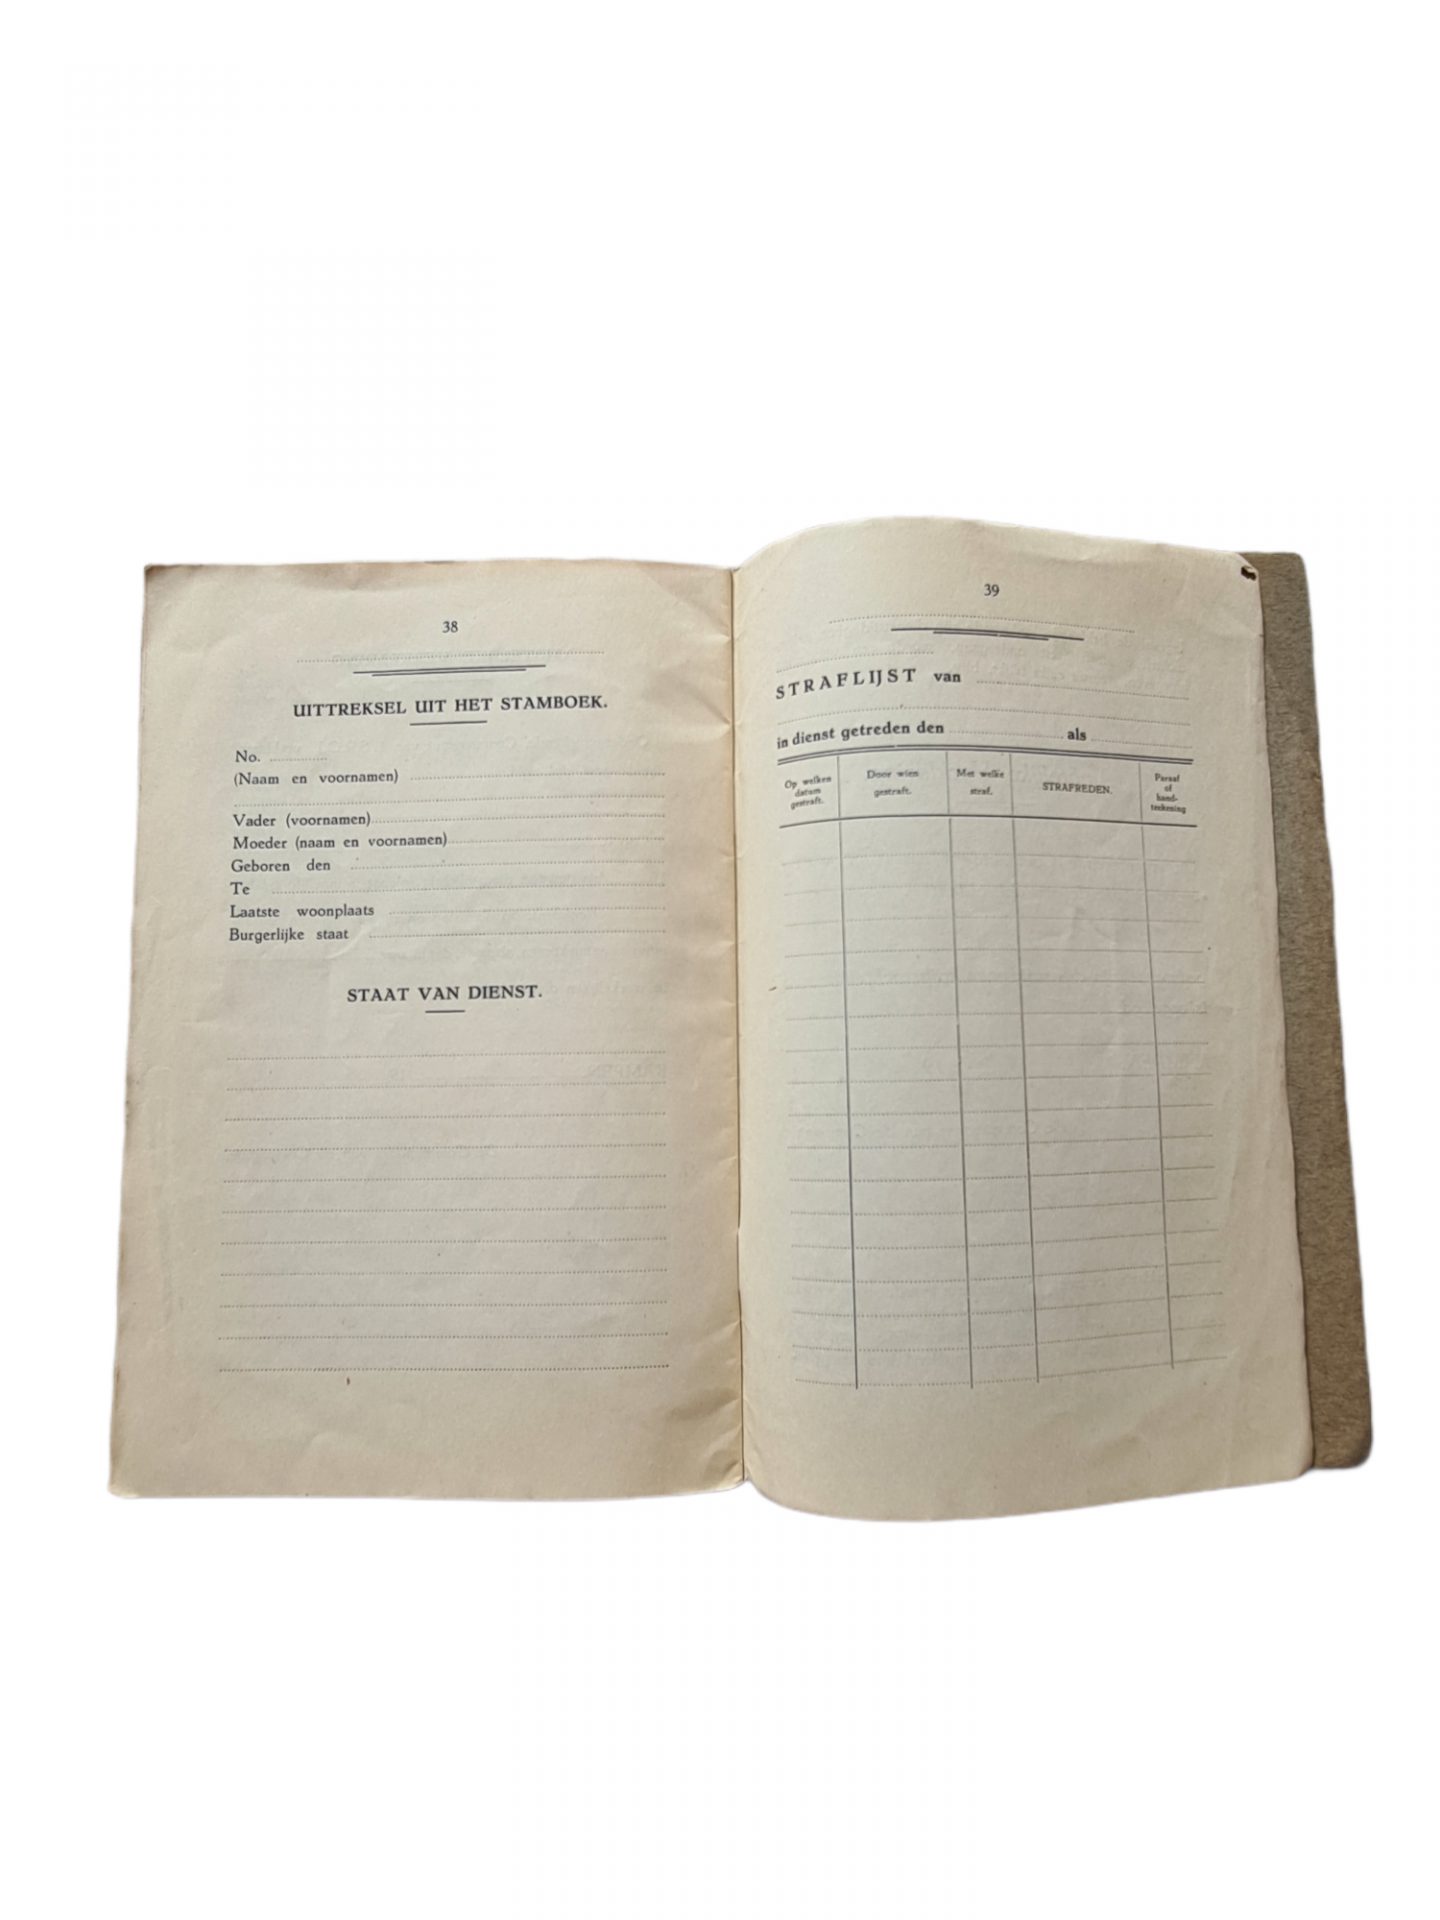 38
UITTREKSEL UIT HET STAMBOEK.
No.
(Naam en voornamen)
Vader (voornamen)
Moeder (naam en voornamen)
Geboren den
Te
Laatste woonplaats
Burgerlijke staat
STAAT VAN DIENST.
39
STRAFLIJST van
in dienst getreden den als
Op welken
datum
gestraft.
Door wien
gestraft.
Met welke
straf.
STRAFREDEN.
Paraaf
of
hand-
teekening